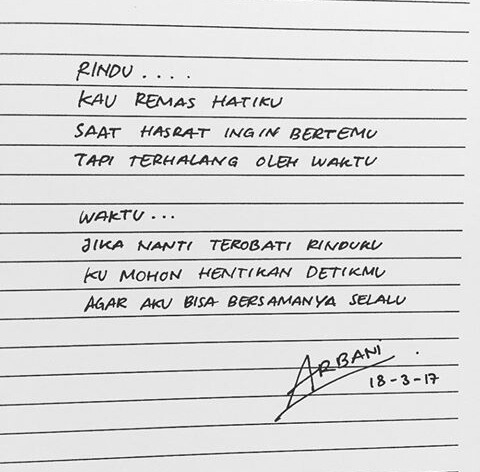 RINDU ....
KAU REMAS HATIKU
SAAT HASRAT INGIN BERTEMU
TAPI TERHALANG OLEH WAKTU
WAKTU ...
JIKA NANTI TEROBATI RINDUKU
KU MOHON HENTIKAN DETIKMU
AGAR AKU BISA BERSAMANYA SELALU
ARBANI .
18-3-17